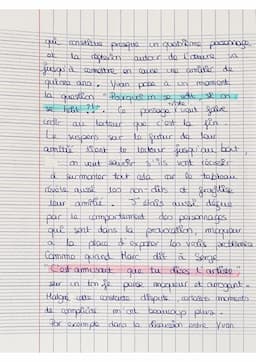 qui constitue presque un quatrième personnage
et la réflexion autour de l'œuvre va
jusqu'à remettre en cause une amitié de
quinze ans. Yvan pose à un moment
la question "Pourquoi on se voit si on
se hait ?!". Ce passage vient faire
au lecteur que c'est la fin
Le suspens sur le futur de leur
amitié tient le lecteur jusqu'au bout,
on veut savoir s'ils vont réussir
à surmonter tout cela car le tableau
révèle aussi les non-dits et fragilise
leur amitié. J'étais aussi déçue
par le comportement des personnages
qui sont dans la provocation, moqueur
à la place d'exposer les vrais problèmes
Comme quand Marc dit à Serge
"C'est amusant que tu dises l'artiste"
sur un ton je pense moqueur et arrogant.
Malgré cette constante dispute, certains moments
de complicité m'ont beaucoup plus.
Par exemple dans la discussion entre Yvan